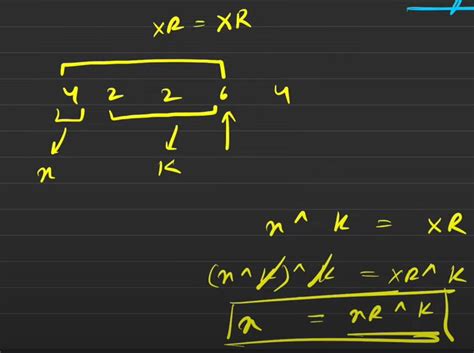 XR = XR
4 2 2 6 4
x K
x ^ k = XR
(x ^ k) ^ k = XR ^ K
x = XR ^ K